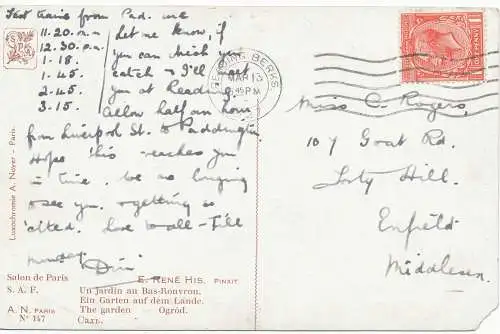 Fast trains from Pad. are
11.20. a.m
12.30. p.m.
1 - 18.
1. 45.
2. 45
3. 15.
Let me know, if
you can which you
catch & I'll meet
you at Reading.
Allow half an hour
from Liverpool St. to Paddington
Hope this reaches you
in time. We are longing
to see you. & getting so
'cited. Love to all - Till
Monday.
READING BERKS
MAR 13
45 PM
Miss C. Rogers,
107 Goat Rd.
Forty Hill.
Enfield
Middlesex.
Luxochromie A. Noyer - Paris.
Salon de Paris
S. A. F.
A. N. PARIS
N° 147
E. RENÉ HIS. PINXIT
Un Jardin au Bas-Rouvrou.
Ein Garten auf dem Lande.
The garden — Ogród.